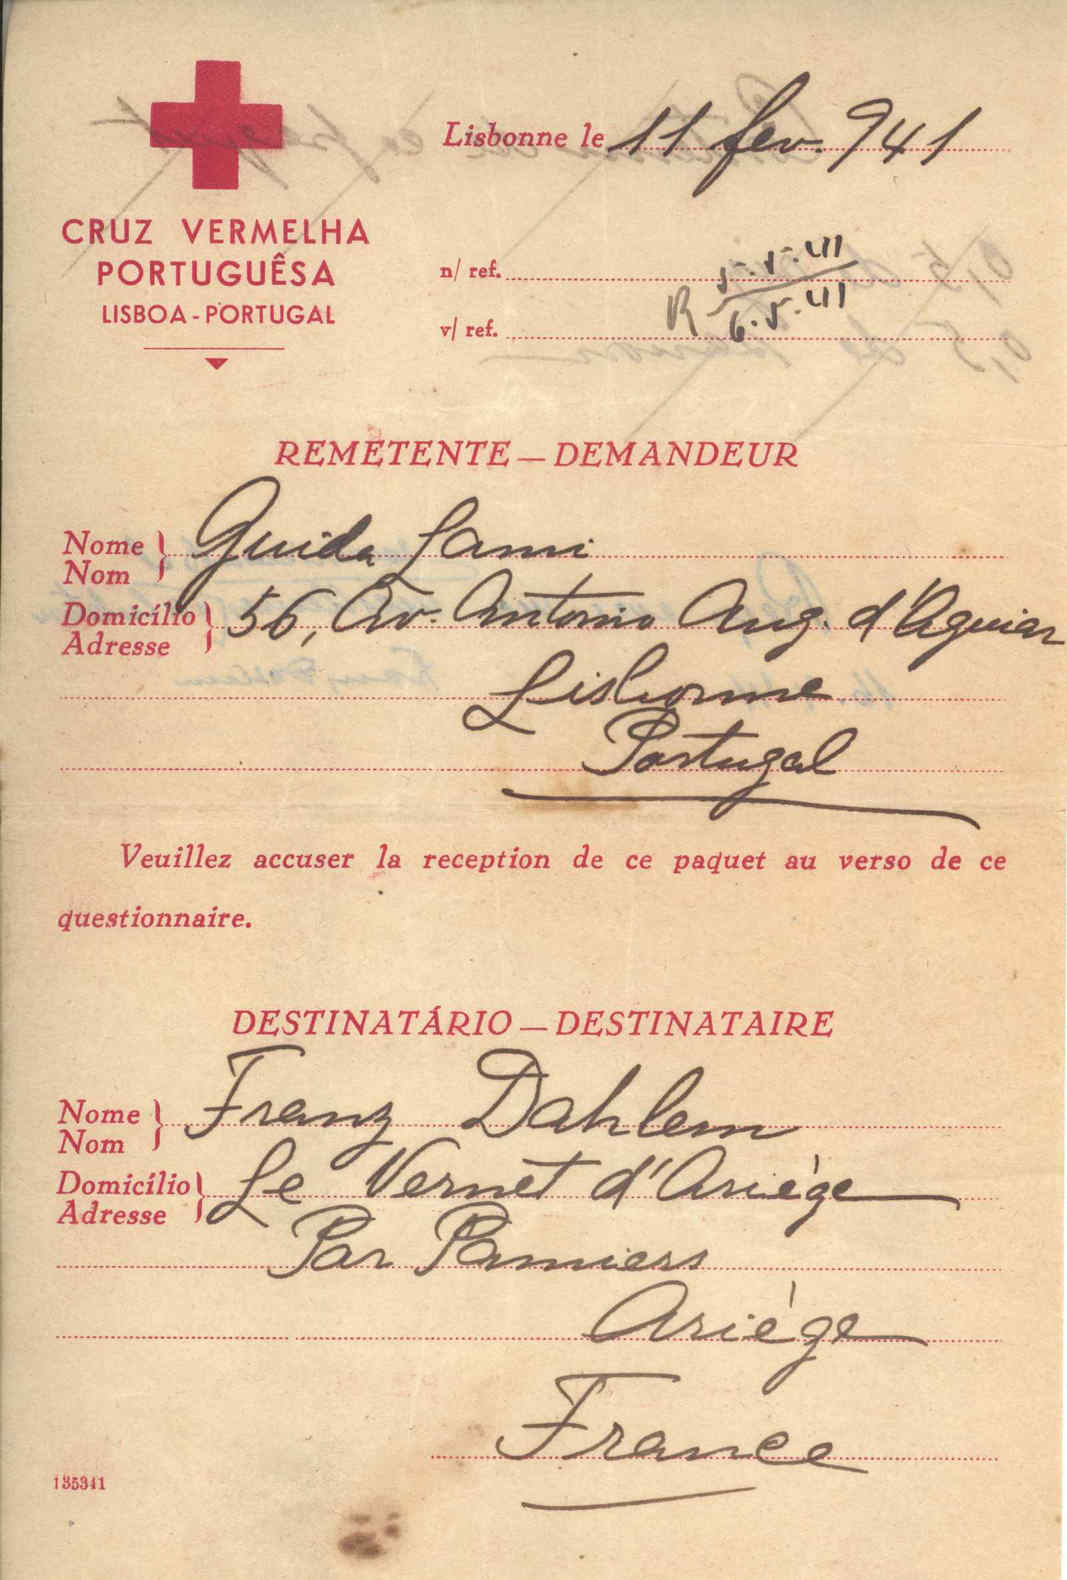 Lisbonne le 11 fev. 941
CRUZ VERMELHA
PORTUGUÊSA
LISBOA - PORTUGAL
n/ ref. 5.5.41
v/ ref. R 6.5.41
REMETENTE — DEMANDEUR
Nome
Nom
Guida Lami
Domicílio
Adresse
56, Av. Antonio Aug. d'Aguiar
Lisbonne
Portugal
Veuillez accuser la reception de ce paquet au verso de ce
questionnaire.
DESTINATÁRIO — DESTINATAIRE
Nome
Nom
Franz Dahlem
Domicílio
Adresse
Le Vernet d'Ariége
Par Pamiers
Ariége
France
135341